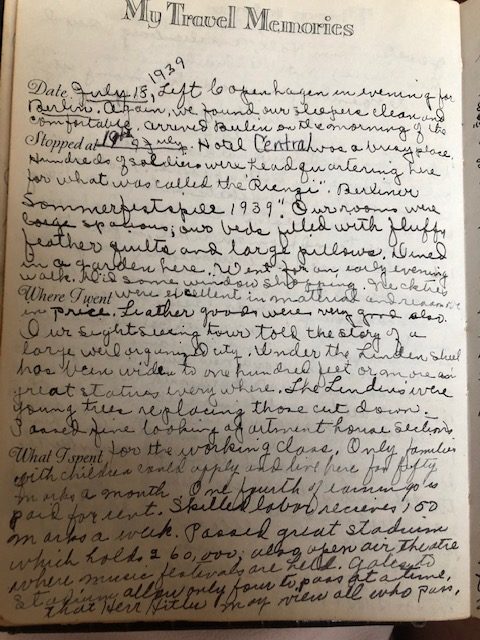 My Travel Memories
1939
Date July 18, Left Copenhagen in evening for
Berlin. Again, we found our sleepers clean and
comfortable. arrived Berlin on the morning of the
Stopped at 19th July. Hotel Central was a busy place.
Hundreds of soldiers were headquartering here
for what was called the "Rienzi". Berliner
Sommerfestspiele 1939". Our rooms were
large spacious, our beds filled with fluffy
feather quilts and large pillows. Dined
in a garden here. Went for an early evening
walk. Did some window shopping. Neckties
Where I went were excellent in material and reasonable
in price. Leather goods were very good also.
Our sightseeing tour told the story of a
large well organized city. Under the Linden street
has been widen to one hundred feet or more and
great statues everywhere. The Lindens were
young trees replacing those cut down.
Passed fine looking apartment house sections
What I spent for the working class. Only families
with children could apply and live here for fifty
marks a month. One fourth of earnings is
paid for rent. Skilled labor recieves 150
marks a week. Passed great stadium
which holds 260,000, also open air theatre
where music festivals are held. Gates to
stadium allow only four to pass at a time,
that Herr Hitler may view all who pass,